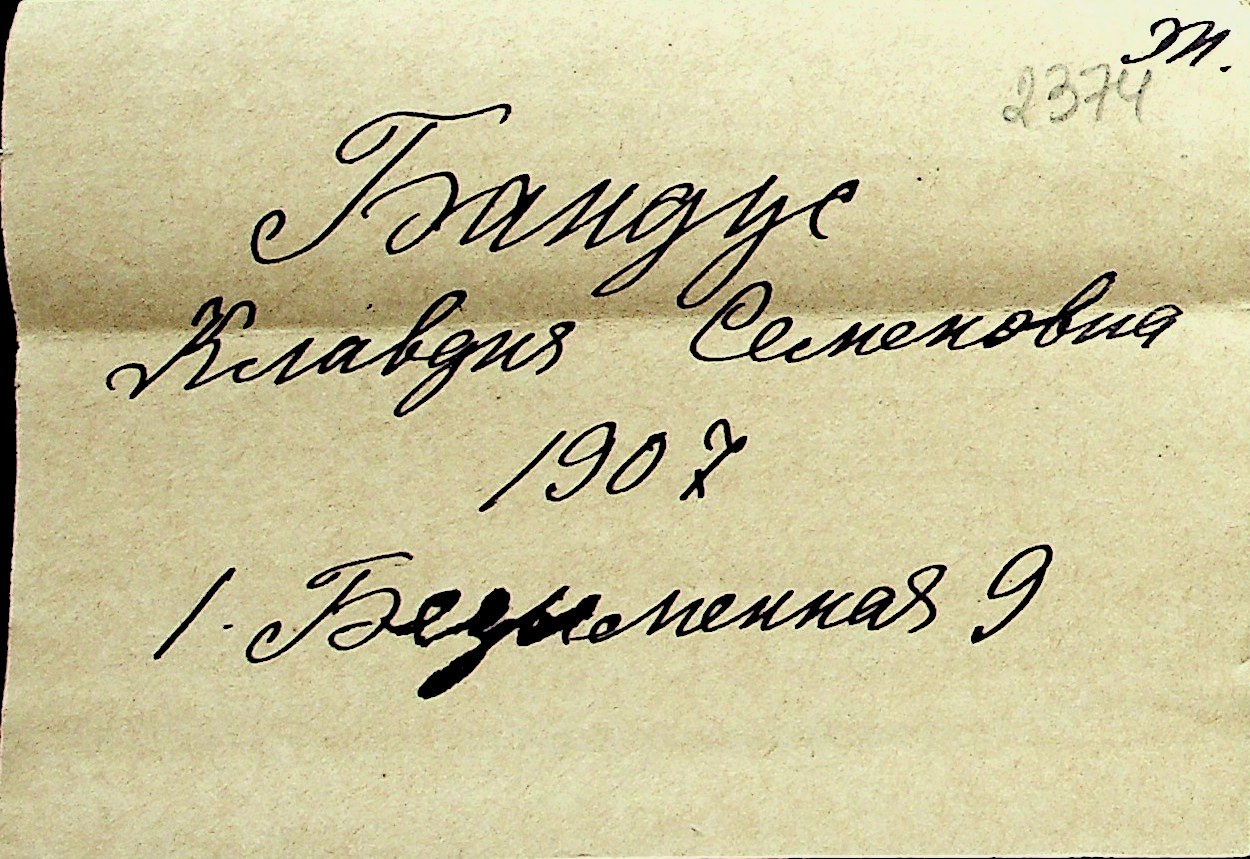 2374
Бандус
Клавдия Семеновна
1907
1. Безыменная 9